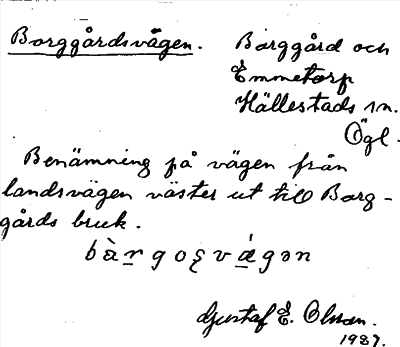 Borggårdsvägen.
Borggård och
Emmetorp
Hällestads sn.
Ögl.
Benämning på vägen från
landsvägen väster ut till Borg-
gårds bruk.
Gustaf E. Olsson.
1987.